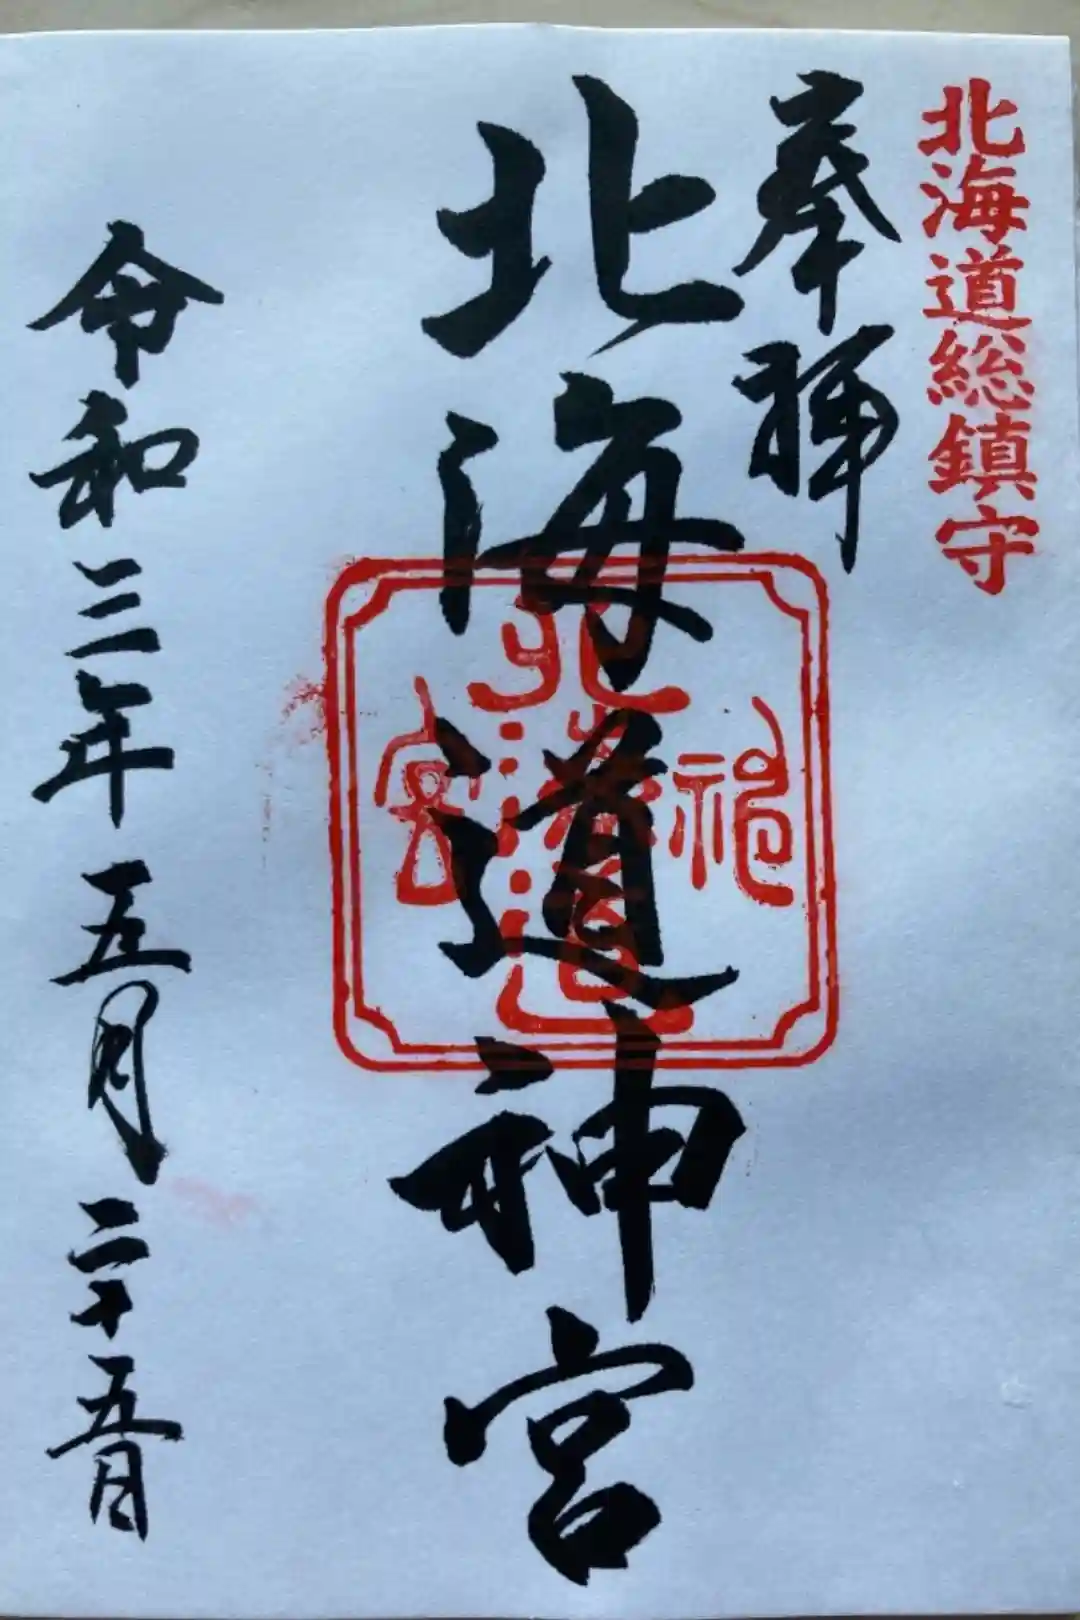 北海道総鎮守
奉拝
北海道神宮
北海道神宮
令和三年五月二十五日